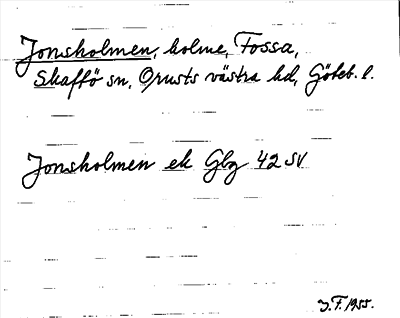 Jonsholmen, holme, Fossa,
Skaftö sn, Orusts västra hd, Göteb. l.
Jonsholmen ek Gbg 42 SV
J.F. 1955.